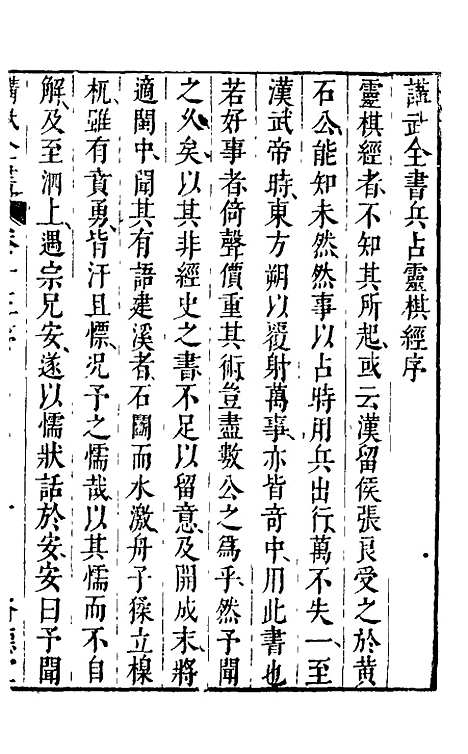 講武全書兵占靈棋經序
靈棋經者不知其所起或云漢留侯張良受之於黃
石公能知未然然事以占時用兵出行萬不失一至
漢武帝時東方朔以覆射萬事亦皆竒中用此書也
若好事者倚聲價重其術豈盡數公之爲乎然予聞
之久矣以其非經史之書不足以留意及開成末將
適閩中聞其有語建溪者石鬪而水激舟子揉立橾
杌雖有賁勇皆汗且慓况予之懦哉以其懦而不自
解及至泗上遇宗兄安遂以懦狀話於安安曰予聞